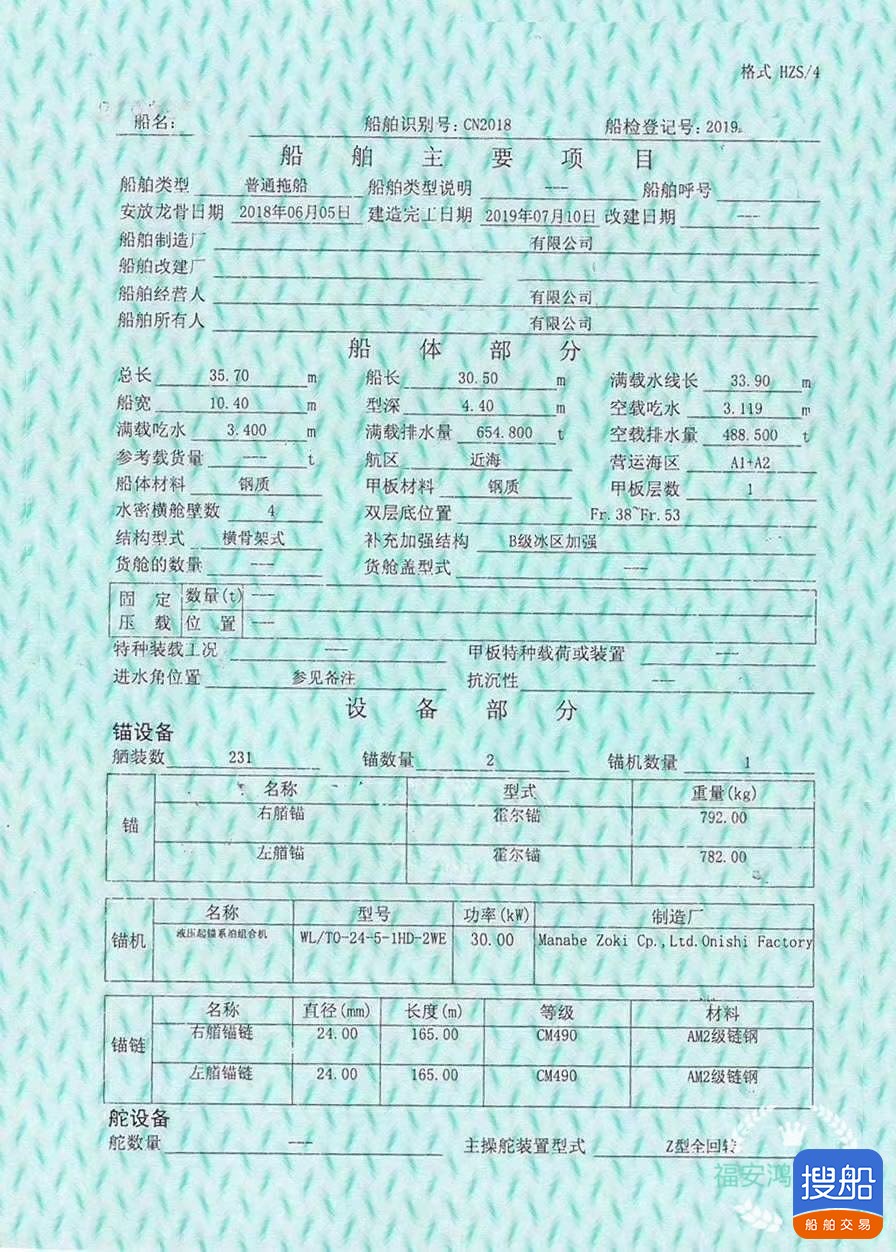 格式 HZS/4
船名: 船舶识别号: CN2018 船检登记号: 2019
船舶主要项目
船舶类型 普通拖船 船舶类型说明 --- 船舶呼号
安放龙骨日期 2018年06月05日 建造完工日期 2019年07月10日 改建日期 ---
船舶制造厂 有限公司
船舶改建厂
船舶经营人 有限公司
船舶所有人 有限公司
船体部分
总长 35.70 m 船长 30.50 m 满载水线长 33.90 m
船宽 10.40 m 型深 4.40 m 空载吃水 3.119 m
满载吃水 3.400 m 满载排水量 654.800 t 空载排水量 488.500 t
参考载货量 --- t 航区 近海 营运海区 A1+A2
船体材料 钢质 甲板材料 钢质 甲板层数 1
水密横舱壁数 4 双层底位置 Fr.38~Fr.53
结构型式 横骨架式 补充加强结构 B级冰区加强
货舱的数量 --- 货舱盖型式 ---
固定压载 数量(t) ---
位置 ---
特种装载工况 --- 甲板特种载荷或装置 ---
进水角位置 参见备注 抗沉性 ---
设备部分
锚设备
舾装数 231 锚数量 2 锚机数量 1
名称 型式 重量(kg)
锚 右艏锚 霍尔锚 792.00
左艏锚 霍尔锚 782.00
名称 型号 功率(kW) 制造厂
锚机 液压起锚系泊组合机 WL/TO-24-5-1HD-2WE 30.00 Manabe Zoki Cp.,Ltd.Onishi Factory
名称 直径(mm) 长度(m) 等级 材料
锚链 右艏锚链 24.00 165.00 CM490 AM2级链钢
左艏锚链 24.00 165.00 CM490 AM2级链钢
舵设备
舵数量 --- 主操舵装置型式 Z型全回转
福安鸿
搜船
船舶交易